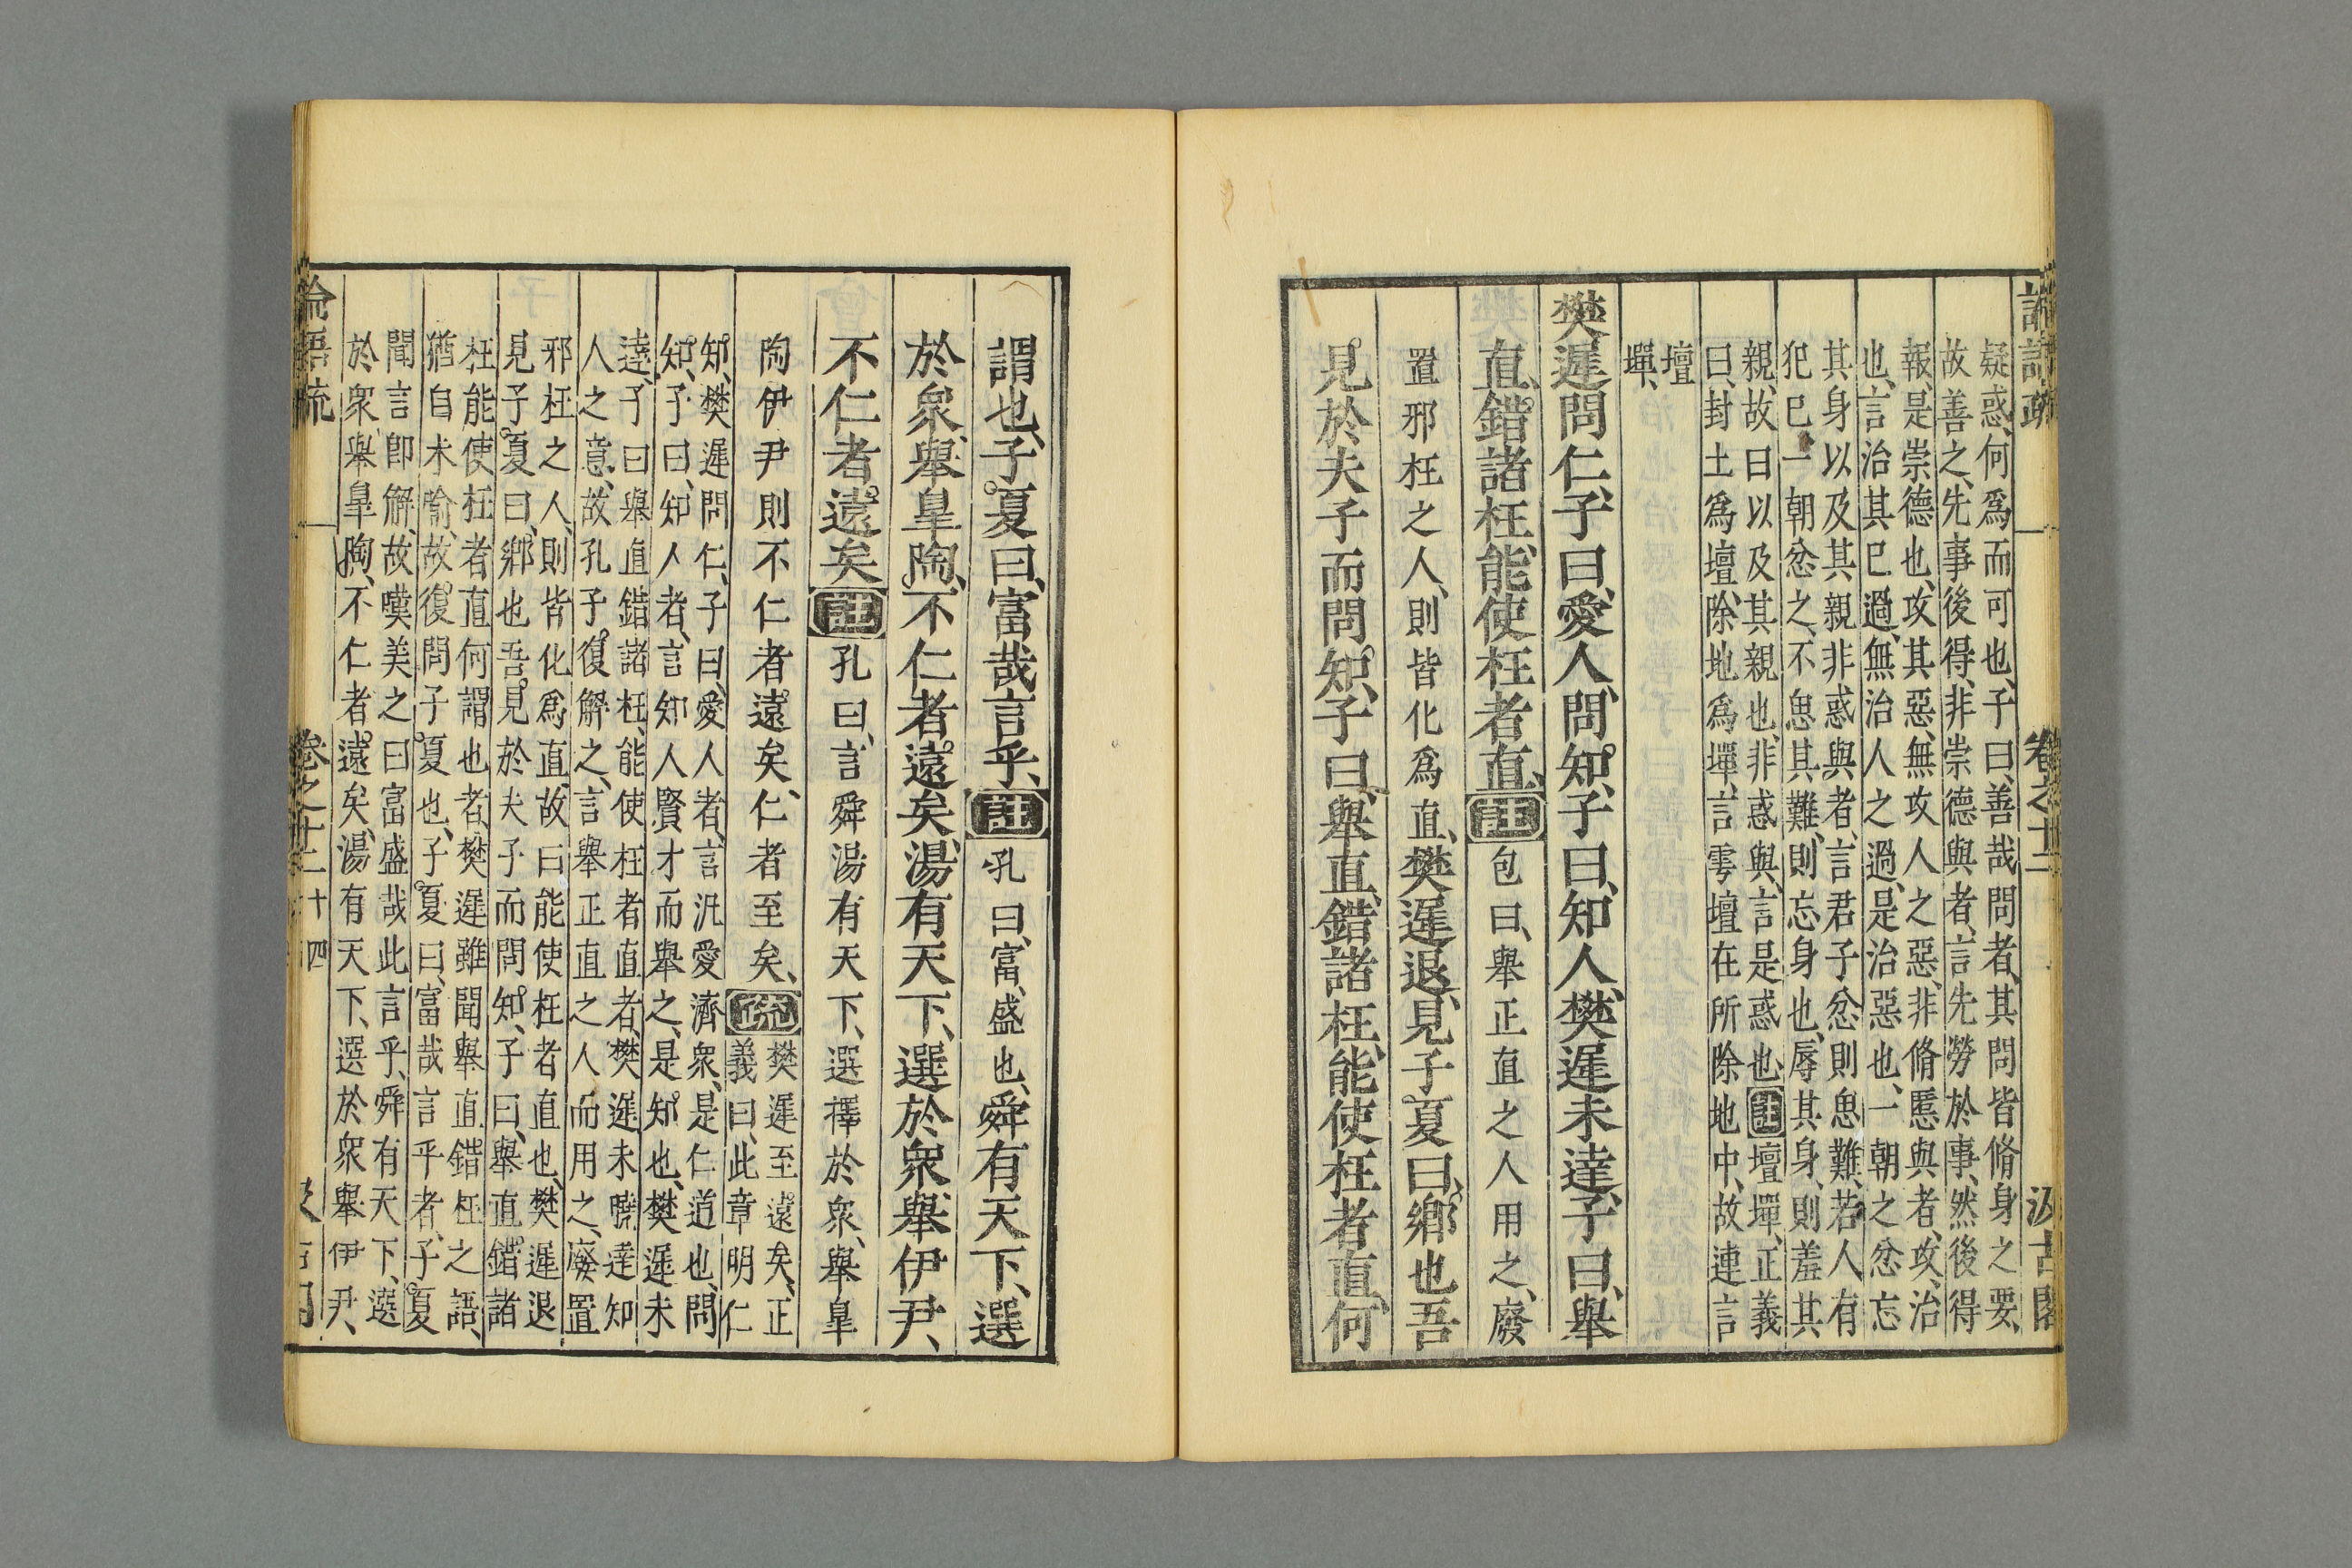 論語疏　卷之十二　汲古閣
疑惑、何爲而可也、子曰、善哉問者、其問皆脩身之要、
故善之、先事後得、非崇德與者、言先勞於事、然後得
報、是崇德也、攻其惡、無攻人之惡、非脩慝與者、攻、治
也、言治其已過、無治人之過、是治惡也、一朝之忿忘
其身以及其親非惑與者、言君子忿則思難、若人有
犯已、一朝忿之、不思其難、則忘身也、辱其身、則羞其
親、故曰以及其親也、非惑與、言是惑也、註壇墠、正義
曰、封土爲壇、除地爲墠、言雩壇在所除地中、故連言
壇
墠、
樊遲問仁、子曰、愛人、問知、子曰、知人、樊遲未達、子曰、舉
直、錯諸枉、能使枉者直、註包曰、舉正直之人用之、廢
置邪枉之人、則皆化爲直、樊遲退、見子夏曰、鄉也吾
見於夫子而問知、子曰、舉直、錯諸枉、能使枉者直、何
謂也、子夏曰、富哉言乎、註孔曰、富、盛也、舜有天下、選
於衆、舉皐陶、不仁者遠矣、湯有天下、選於衆、舉伊尹、
不仁者遠矣註孔曰、言舜湯有天下、選擇於衆、舉皐
陶伊尹則不仁者遠矣、仁者至矣、疏樊遲至遠矣、正
義曰、此章明仁
知、樊遲問仁、子曰、愛人者、言汎愛濟衆、是仁道也、問
知、子曰、知人者、言知人賢才而舉之、是知也、樊遲未
達、子曰舉直錯諸枉、能使枉者直者、樊遲未曉達知
人之意、故孔子復解之、言舉正直之人而用之、廢置
邪枉之人、則皆化爲直、故曰能使枉者直也、樊遲退
見子夏曰、鄉也吾見於夫子而問知、子曰、舉直錯諸
枉能使枉者直何謂也者、樊遲雖聞舉直錯枉之語、
猶自未喻、故復問子夏也、子夏曰、富哉言乎者、子夏
聞言卽解、故嘆美之曰富盛哉此言乎、舜有天下、選
於衆舉皐陶、不仁者遠矣、湯有天下、選於衆舉伊尹、
論語疏　卷之十二　十四